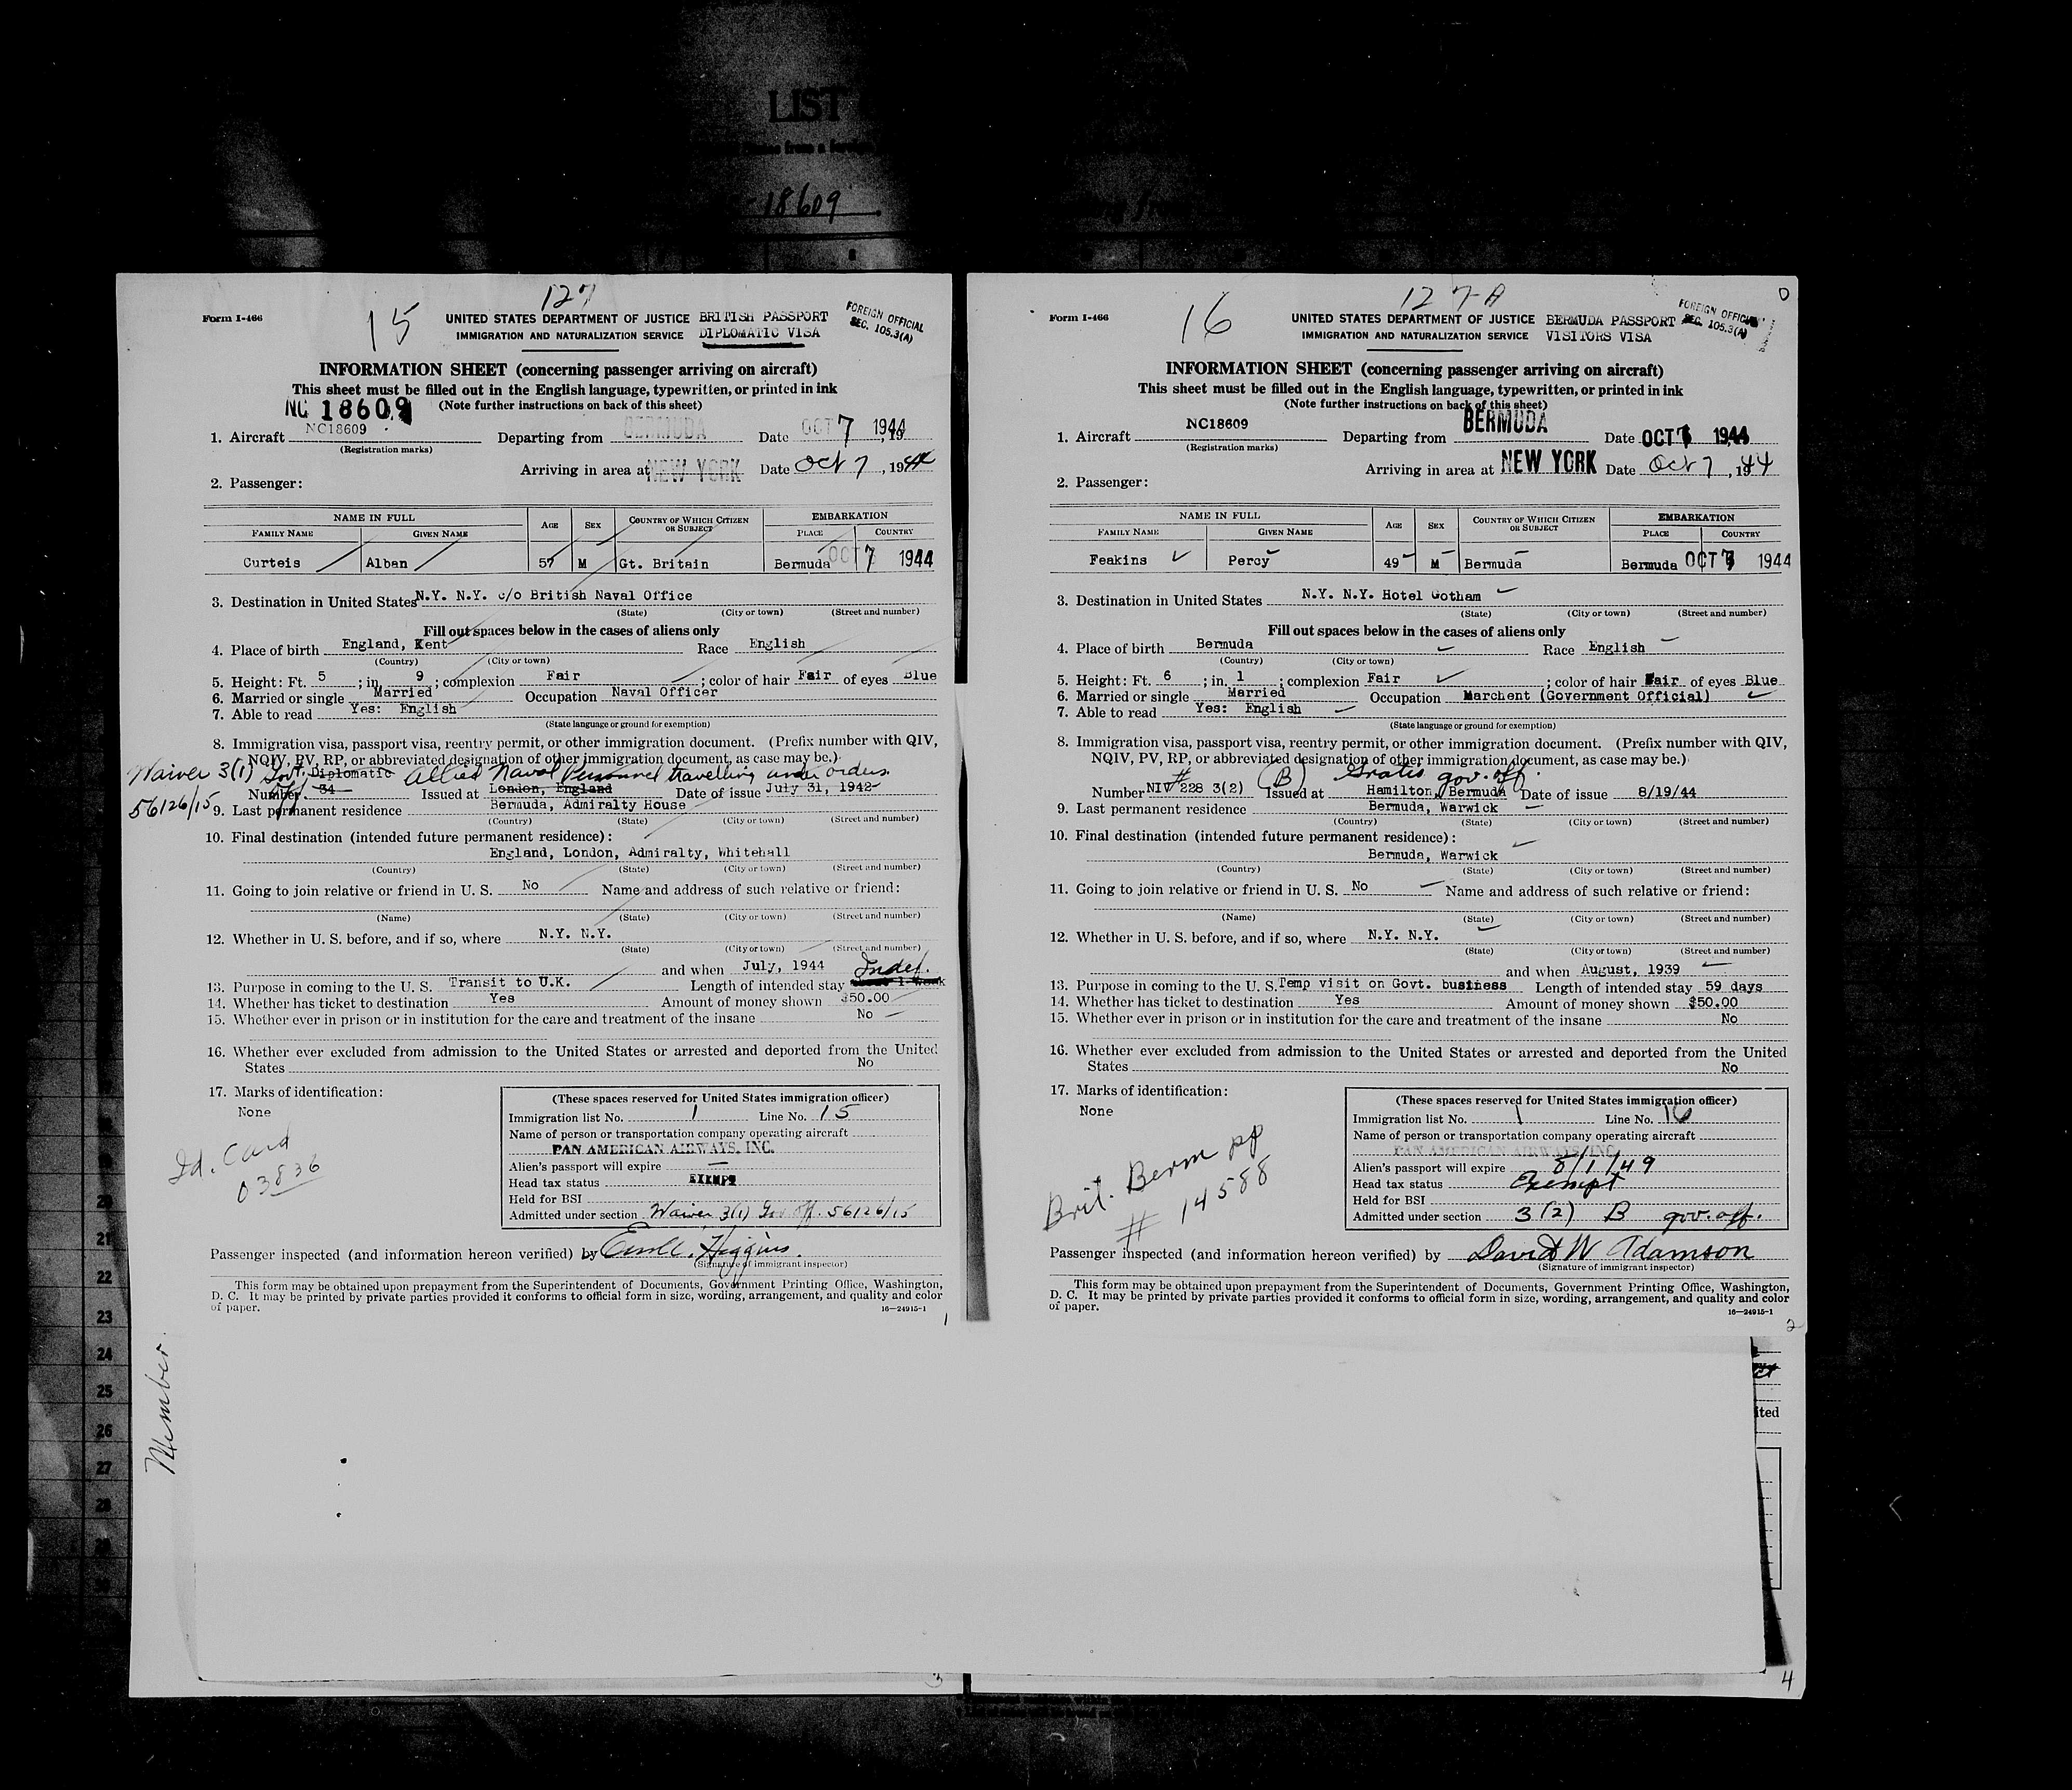 LIST
18609
127
15
Form I-466
UNITED STATES DEPARTMENT OF JUSTICE BRITISH PASSPORT
IMMIGRATION AND NATURALIZATION SERVICE DIPLOMATIC VISA
FOREIGN OFFICIAL
SEC. 105.3(A)
INFORMATION SHEET (concerning passenger arriving on aircraft)
This sheet must be filled out in the English language, typewritten, or printed in ink
(Note further instructions on back of this sheet)
NC 18609
1. Aircraft NC18609 Departing from BERMUDA Date OCT 7 1944, 19
(Registration marks)
Arriving in area at NEW YORK Date Oct 7, 1944
2. Passenger:
NAME IN FULL AGE SEX COUNTRY OF WHICH CITIZEN OR SUBJECT EMBARKATION
FAMILY NAME GIVEN NAME PLACE COUNTRY
Curteis Alban 57 M Gt. Britain Bermuda OCT 7 1944
3. Destination in United States N.Y. N.Y. c/o British Naval Office
(State) (City or town) (Street and number)
Fill out spaces below in the cases of aliens only
4. Place of birth England, Kent Race English
(Country) (City or town)
5. Height: Ft. 5; in. 9; complexion Fair; color of hair Fair of eyes Blue
6. Married or single Married Occupation Naval Officer
7. Able to read Yes: English
(State language or ground for exemption)
8. Immigration visa, passport visa, reentry permit, or other immigration document. (Prefix number with QIV,
NQIV, PV, RP, or abbreviated designation of other immigration document, as case may be.)
Waiver 3(1) Govt. Diplomatic Allied Naval Personnel travelling under orders.
off.
Number 34 Issued at London, England Date of issue July 31, 1942
56126/15
9. Last permanent residence Bermuda, Admiralty House
(Country) (State) (City or town) (Street and number)
10. Final destination (intended future permanent residence):
England, London, Admiralty, Whitehall
(Country) (State) (City or town) (Street and number)
11. Going to join relative or friend in U. S. No Name and address of such relative or friend:
(Name) (State) (City or town) (Street and number)
12. Whether in U. S. before, and if so, where N.Y. N.Y.
(State) (City or town) (Street and number)
and when July, 1944 Indef.
13. Purpose in coming to the U. S. Transit to U.K. Length of intended stay 1 week
14. Whether has ticket to destination Yes Amount of money shown $50.00
15. Whether ever in prison or in institution for the care and treatment of the insane No
16. Whether ever excluded from admission to the United States or arrested and deported from the United
States No
17. Marks of identification:
None
Id. Card
03836
(These spaces reserved for United States immigration officer)
Immigration list No. 1 Line No. 15
Name of person or transportation company operating aircraft
PAN AMERICAN AIRWAYS, INC.
Alien's passport will expire —
Head tax status EXEMPT
Held for BSI
Admitted under section Waiver 3(1) Gov off. 56126/15
Passenger inspected (and information hereon verified) by Higgins.
(Signature of immigrant inspector)
This form may be obtained upon prepayment from the Superintendent of Documents, Government Printing Office, Washington,
D. C. It may be printed by private parties provided it conforms to official form in size, wording, arrangement, and quality and color
of paper.
16—24915-1
1
Member.
20
21
22
23
24
25
26
27
28
3
127-A
16
Form I-466
UNITED STATES DEPARTMENT OF JUSTICE BERMUDA PASSPORT
IMMIGRATION AND NATURALIZATION SERVICE VISITORS VISA
FOREIGN OFFICIAL
SEC. 105.3(A)
INFORMATION SHEET (concerning passenger arriving on aircraft)
This sheet must be filled out in the English language, typewritten, or printed in ink
(Note further instructions on back of this sheet)
1. Aircraft NC18609 Departing from BERMUDA Date OCT 7 1944
(Registration marks)
Arriving in area at NEW YORK Date Oct 7, 1944
2. Passenger:
NAME IN FULL AGE SEX COUNTRY OF WHICH CITIZEN OR SUBJECT EMBARKATION
FAMILY NAME GIVEN NAME PLACE COUNTRY
Feakins Percy 49 M Bermuda Bermuda OCT 7 1944
3. Destination in United States N.Y. N.Y. Hotel Gotham
(State) (City or town) (Street and number)
Fill out spaces below in the cases of aliens only
4. Place of birth Bermuda Race English
(Country) (City or town)
5. Height: Ft. 6; in. 1; complexion Fair; color of hair Fair of eyes Blue
6. Married or single Married Occupation Marchent (Government Official)
7. Able to read Yes: English
(State language or ground for exemption)
8. Immigration visa, passport visa, reentry permit, or other immigration document. (Prefix number with QIV,
NQIV, PV, RP, or abbreviated designation of other immigration document, as case may be.)
# (B) Gratis gov. off.
Number NIV 228 3(2) Issued at Hamilton, Bermuda Date of issue 8/19/44
9. Last permanent residence Bermuda, Warwick
(Country) (State) (City or town) (Street and number)
10. Final destination (intended future permanent residence):
Bermuda, Warwick
(Country) (State) (City or town) (Street and number)
11. Going to join relative or friend in U. S. No Name and address of such relative or friend:
(Name) (State) (City or town) (Street and number)
12. Whether in U. S. before, and if so, where N.Y. N.Y.
(State) (City or town) (Street and number)
and when August, 1939
13. Purpose in coming to the U. S. Temp visit on Govt. business Length of intended stay 59 days
14. Whether has ticket to destination Yes Amount of money shown $50.00
15. Whether ever in prison or in institution for the care and treatment of the insane No
16. Whether ever excluded from admission to the United States or arrested and deported from the United
States No
17. Marks of identification:
None
Brit. Berm pp
# 14588
(These spaces reserved for United States immigration officer)
Immigration list No. 1 Line No. 16
Name of person or transportation company operating aircraft
PAN AMERICAN AIRWAYS, INC.
Alien's passport will expire 8/1/49
Head tax status Exempt
Held for BSI
Admitted under section 3(2) B gov. off.
Passenger inspected (and information hereon verified) by David W Adamson
(Signature of immigrant inspector)
This form may be obtained upon prepayment from the Superintendent of Documents, Government Printing Office, Washington,
D. C. It may be printed by private parties provided it conforms to official form in size, wording, arrangement, and quality and color
of paper.
16—24915-1
2
ited
4